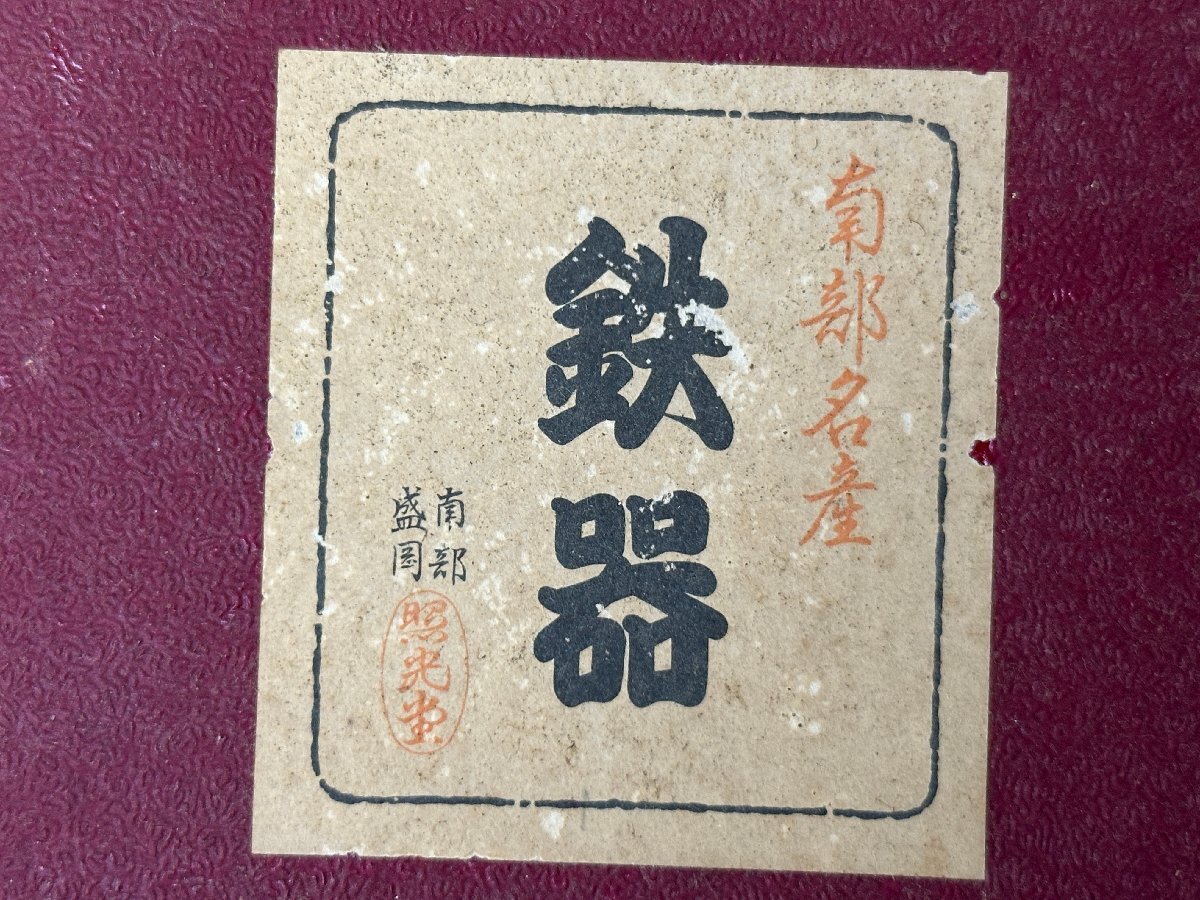 南部名産
鉄器
南部
盛岡
照光堂